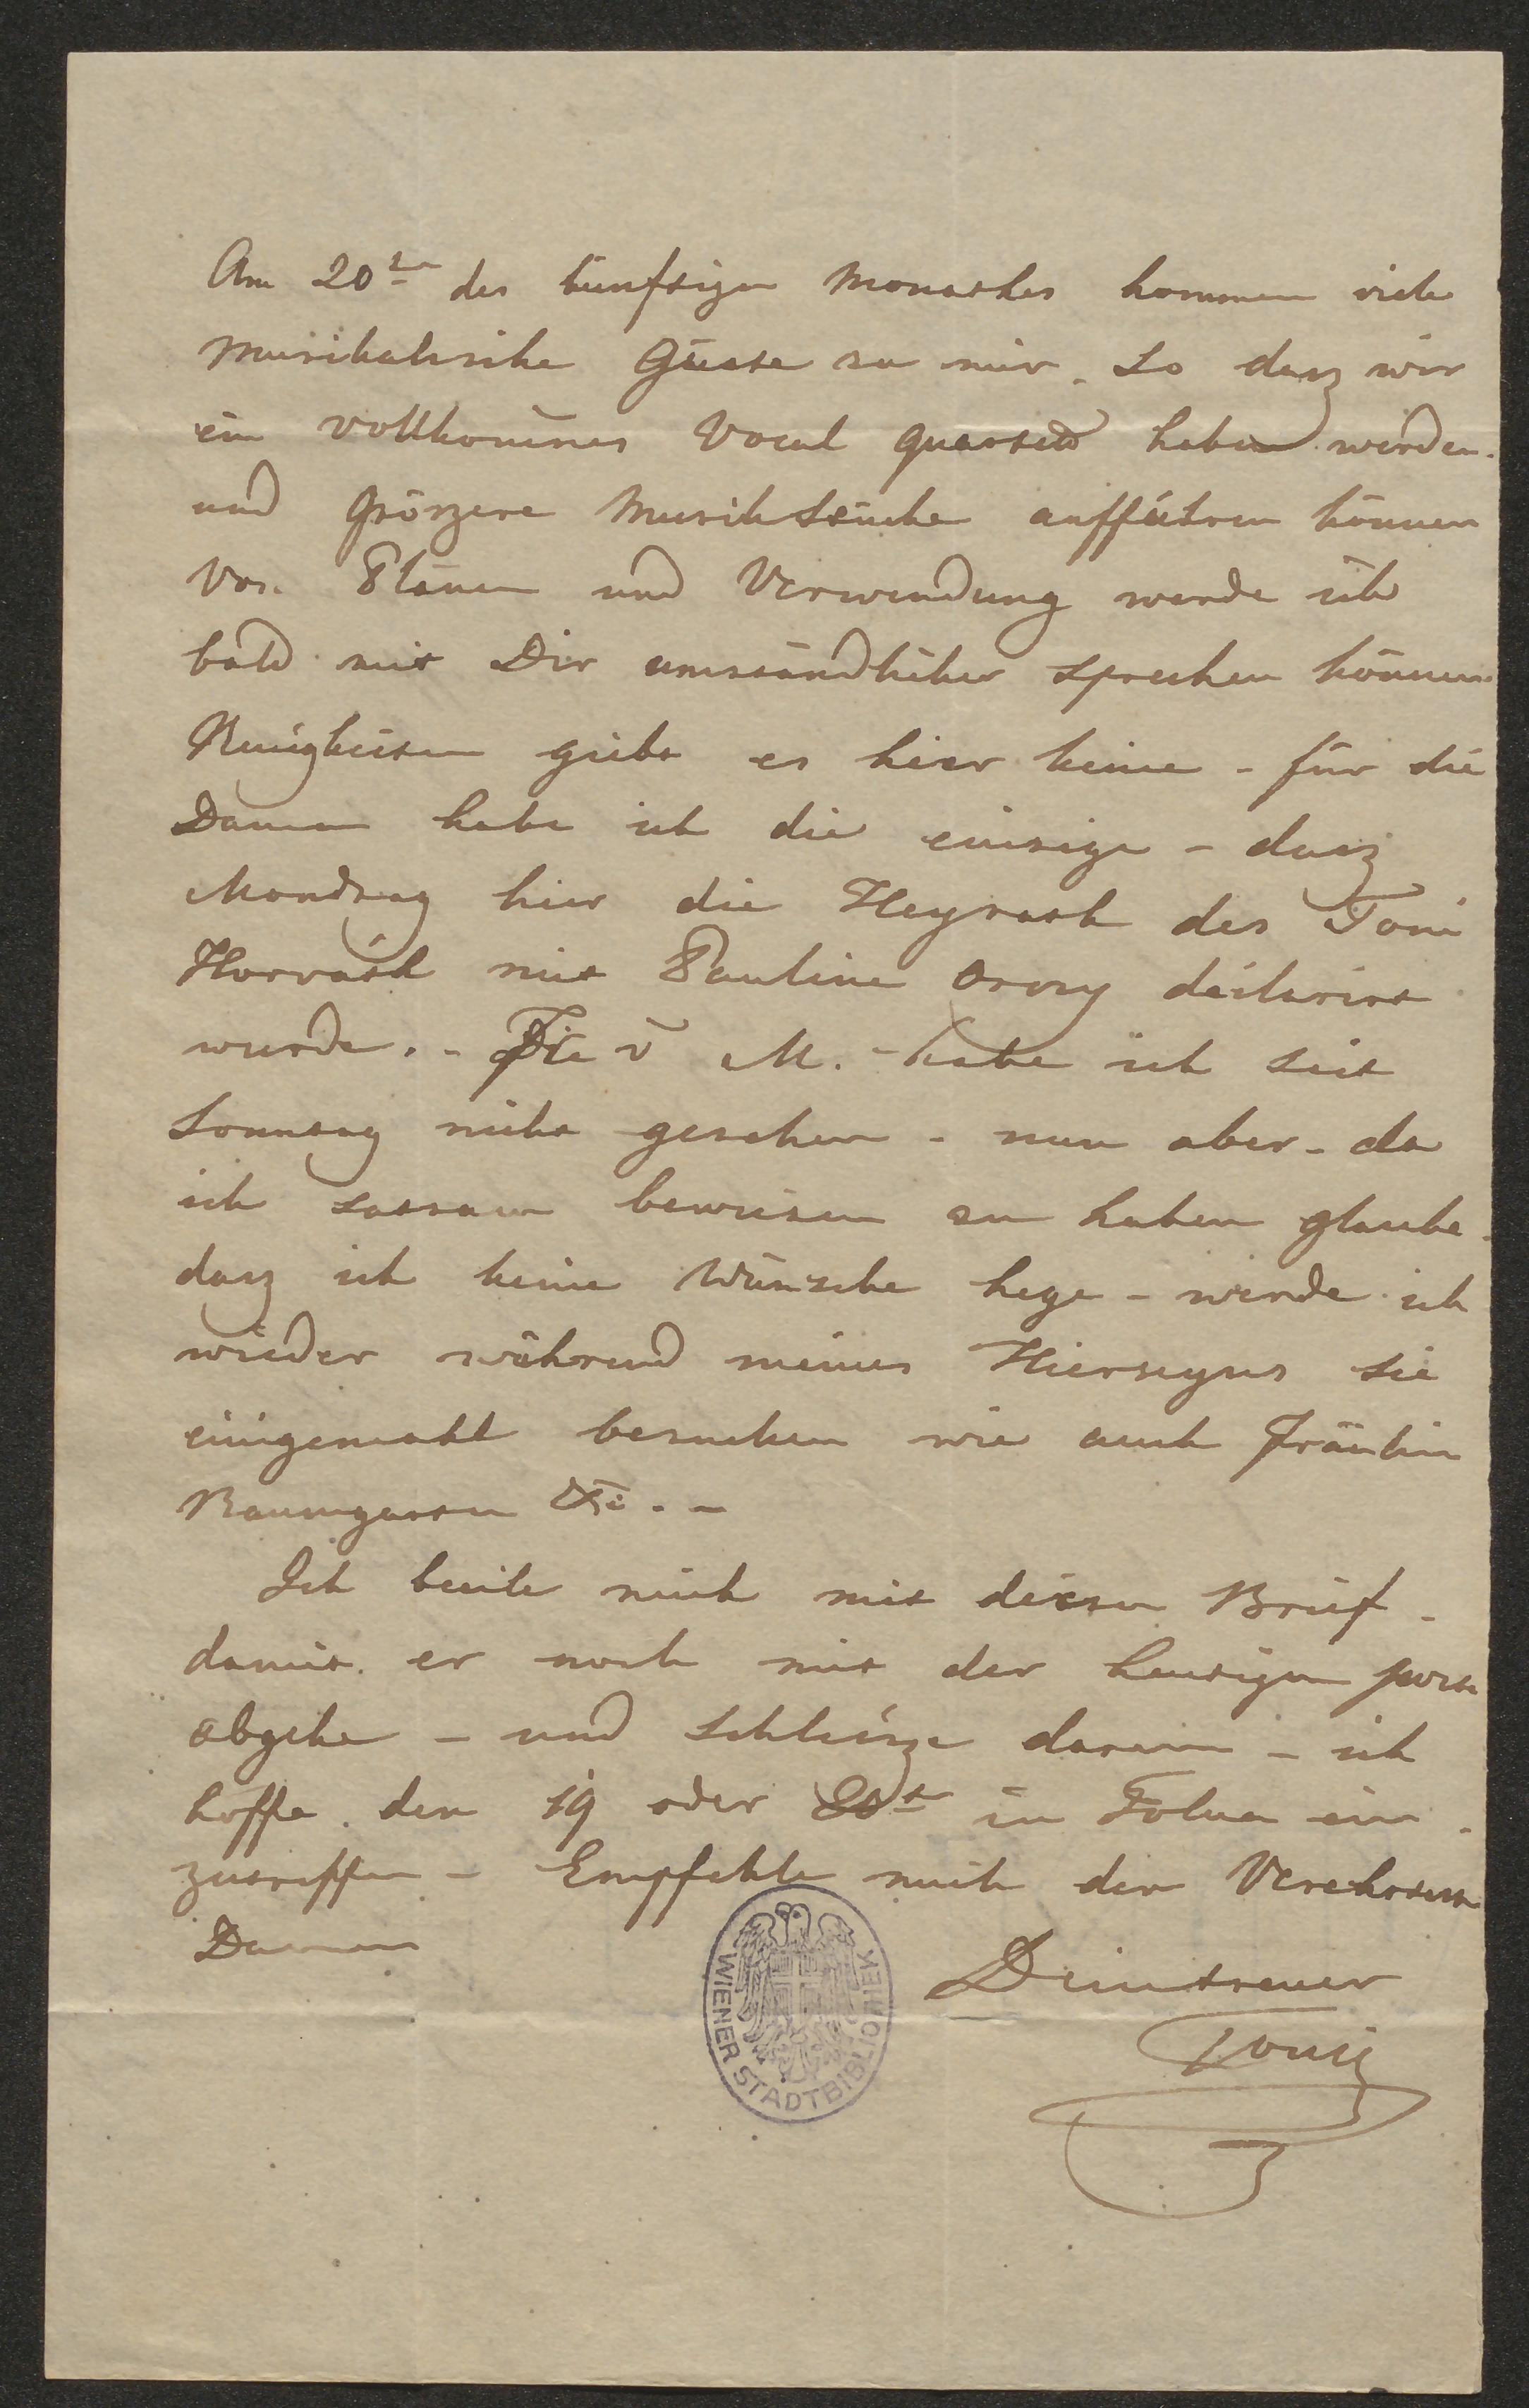 Am 20ten des künftigen Monathes kommen viele
musikalische Gäste zu mir. so dasz wir
ein vollkomēnes Vocal quartett haben werden.
und Gröszere Musikstücke aufführen können
Von Plänen und Verwendung werde ich
bald mit Dir umständlicher sprechen können
Neuigkeiten giebt es hier keine - für die
Damen habe ich die einzige - dasz
Mondtag hier die Heyrath des Toni
Horváth mit Pauline Orozy déclarirt
wurde. - v M. - habe ich seit
Sonntag nicht gesehen - nun aber - da
ich sattsam bewiesen zu haben glaube.
dasz ich keine Wünsche hege - werde ich
wieder während meines Hierseyns sie
einigemahl besuchen wie auch Fräulein
Baumgarten &c. -
Ich beeile mich mit diesen Brief -
damit er noch mit der heutigen post
abgehe - und schliesze darum - ich
hoffe den 19 oder 20t in Tolna ein-
zutreffen - Empfehle mich den Verehrten
Damen
Deintreuer
Tony
WIENER STADTBIBLIOTHEK